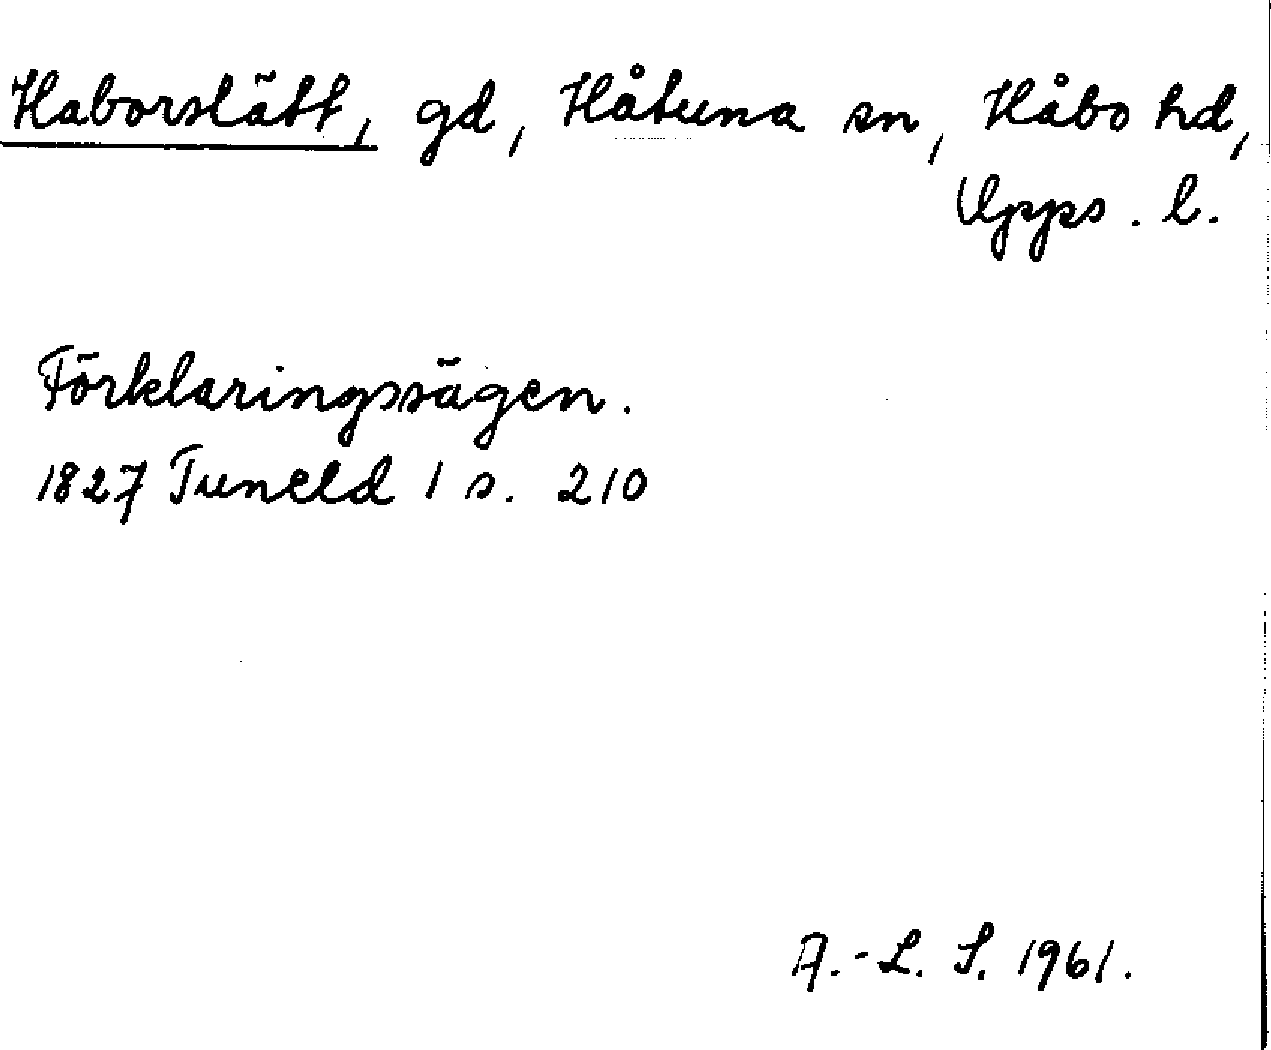 Haborslätt, gd, Håtuna sn, Håbo hd,
Upps. l.
Förklaringssägen.
1827 Tuneld 1 s. 210
A.-L. S. 1961.